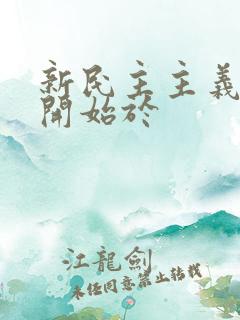 新民主主義
開始於
江龍劍
未經同意禁止轉載